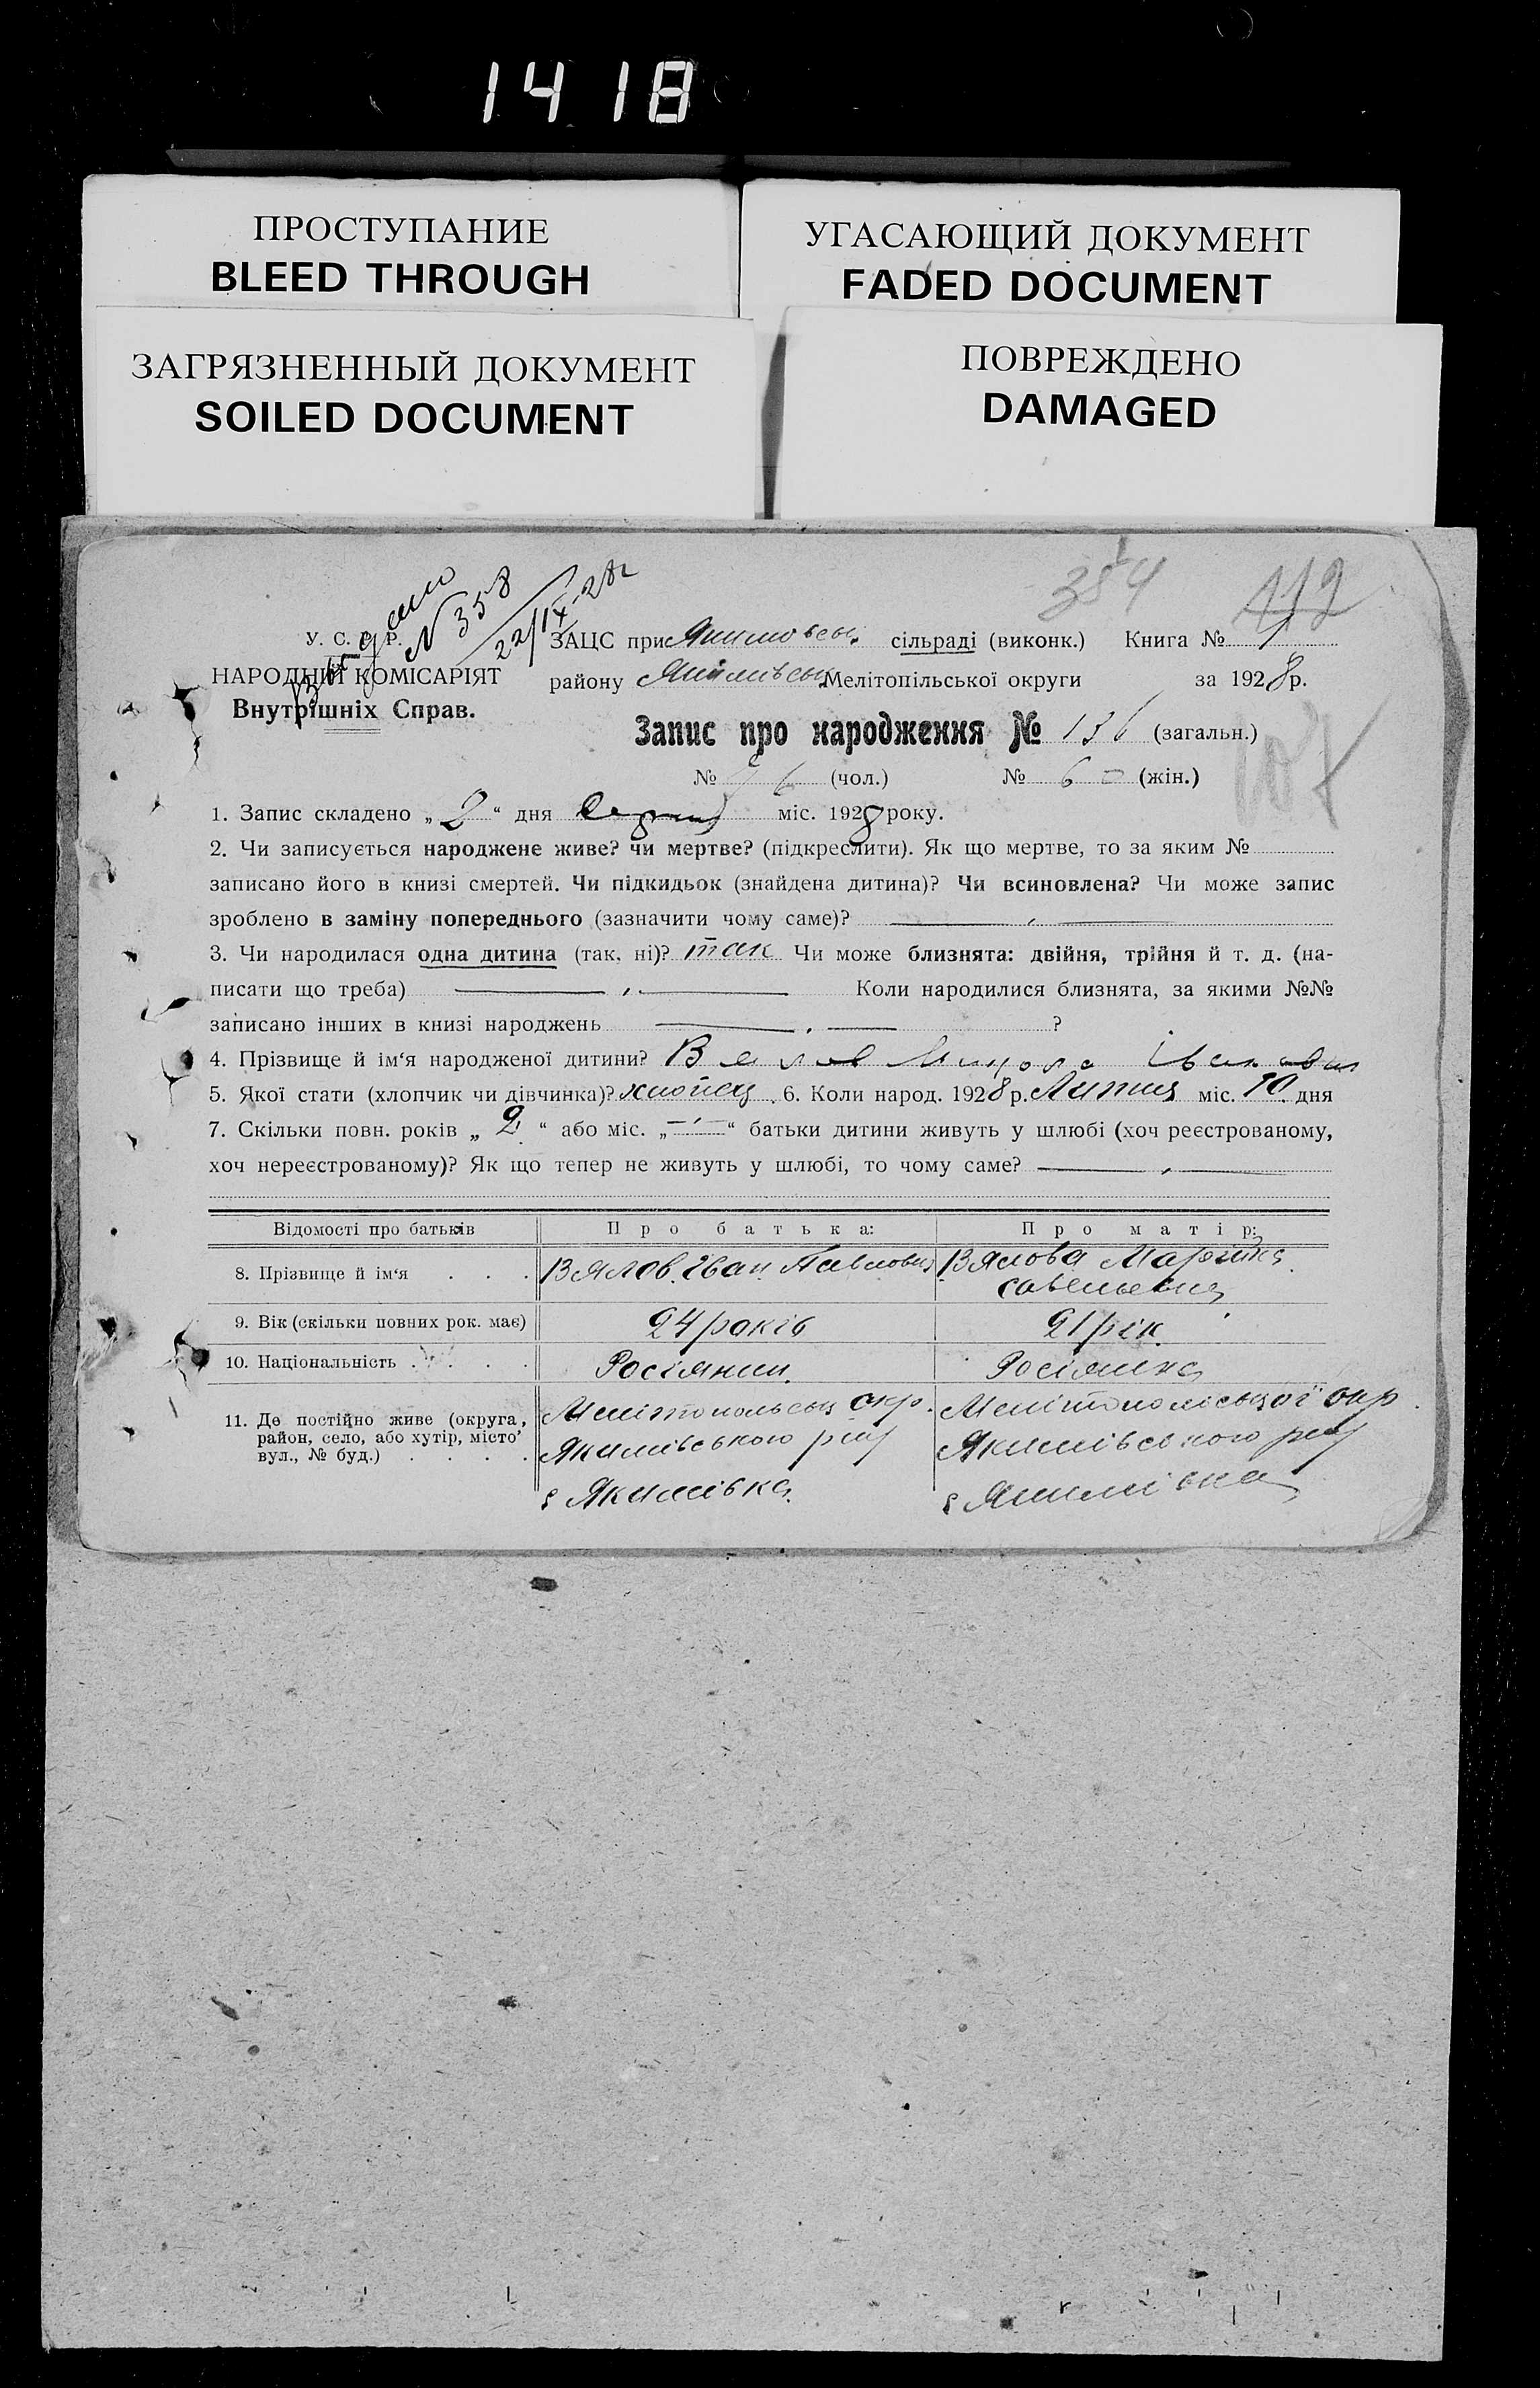 1418
ПРОСТУПАНИЕ
BLEED THROUGH
УГАСАЮЩИЙ ДОКУМЕНТ
FADED DOCUMENT
ЗАГРЯЗНЕННЫЙ ДОКУМЕНТ
SOILED DOCUMENT
ПОВРЕЖДЕНО
DAMAGED
354
112
N 358
22/IX-28г
У. С. Р. Р.
НАРОДНІЙ КОМІСАРІЯТ
Внутрішніх Справ.
ЗАЦС при Якимовськ. сільраді (виконк.) Книга № 1
району Якимівськ Мелітопільської округи за 1928 р.
Запис про народження № 136 (загальн.)
№ 76 (чол.) № 60 (жін.)
1. Запис складено „ 2 “ дня Серпня міс. 1928 року.
2. Чи записується народжене живе? чи мертве? (підкреслити). Як що мертве, то за яким №
записано його в книзі смертей. Чи підкидьок (знайдена дитина)? Чи всиновлена? Чи може запис
зроблено в заміну попереднього (зазначити чому саме)?
3. Чи народилася одна дитина (так, ні)? так Чи може близнята: двійня, трійня й т. д. (на-
писати що треба) Коли народилися близнята, за якими №№
записано інших в книзі народжень ?
4. Прізвище й ім‘я народженої дитини? Вялов Микола Іванович
5. Якої стати (хлопчик чи дівчинка)? хлопець. 6. Коли народ. 1928 р. Липня міс. 10 дня
7. Скільки повн. років „ 2 “ або міс. „ — “ батьки дитини живуть у шлюбі (хоч реєстрованому,
хоч нереєстрованому)? Як що тепер не живуть у шлюбі, то чому саме?
Відомості про батьків Про батька: Про матір:
8. Прізвище й ім‘я . . . Вялов Іван Павлович Вялова Марфина Савельевна
9. Вік (скільки повних рок. має) 24 років 21 рік
10. Національність . . . . Росіянин. Росіянка
11. Де постійно живе (округа, район, село, або хутір, місто’ вул., № буд.) . . . .
Мелітопольськ окр. Мелітопольської окр.
Якимівського р-ну Якимівського р-ну
с Якимівка с Якимівка